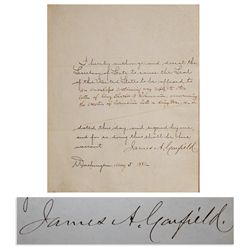 I hereby authorize and direct the
Secretary of State to cause the Seal
of the United States to be affixed to
an envelope containing my reply to the
dated this day, and signed by me
and for so doing this shall be his
warrant.
James A. Garfield
Washington, May 5 1881
James A. Garfield.